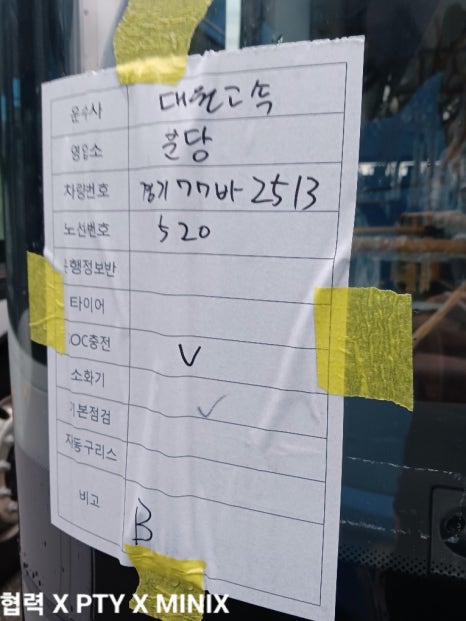 운수사 대원고속
영업소 분당
차량번호 경기77바2513
노선번호 520
운행정보반
타이어
OC충전 V
소화기
기본점검 ✓
자동구리스
비고 B
협력 X PTY X MINIX